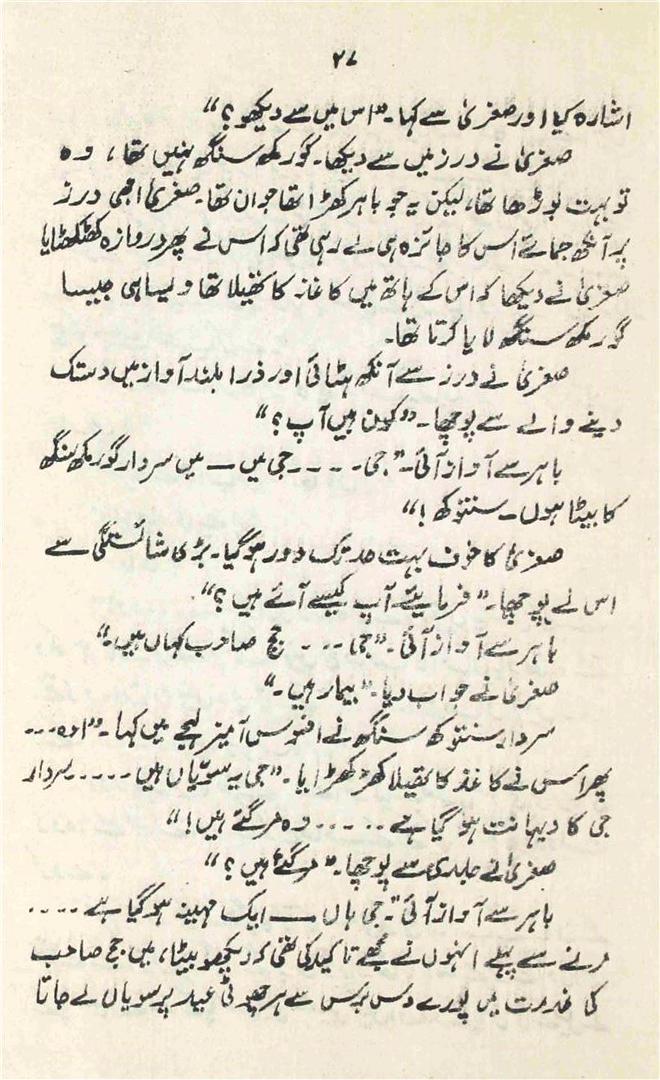 ۲۷
اشارہ کیا اور صغریٰ سے کہا۔ "اس میں سے دیکھو؟"
صغریٰ نے درز میں سے دیکھا۔ گورمکھ سنگھ نہیں تھا، وہ
تو بہت بوڑھا تھا، لیکن یہ جو باہر کھڑا تھا جوان تھا۔ صغریٰ ابھی درز
پر آنکھ جمائے اس کا جائزہ ہی لے رہی تھی کہ اس نے پھر دروازہ کھٹکھٹایا
صغریٰ نے دیکھا کہ اس کے ہاتھ میں کاغذ کا تھیلا تھا ویسا ہی جیسا
گورمکھ سنگھ لایا کرتا تھا۔
صغریٰ نے درز سے آنکھ ہٹائی اور ذرا بلند آواز میں دستک
دینے والے سے پوچھا۔ "کون ہیں آپ؟"
باہر سے آواز آئی۔ "جی۔۔۔۔ جی میں — میں سردار گورمکھ سنگھ
کا بیٹا ہوں۔ سنتوکھ!"
صغریٰ کا خوف بہت حد تک دور ہو گیا۔ بڑی شائستگی سے
اس نے پوچھا۔ "فرمایئے۔ آپ کیسے آئے ہیں؟"
باہر سے آواز آئی۔ "جی۔۔۔ جج صاحب کہاں ہیں۔"
صغریٰ نے جواب دیا۔ "بیمار ہیں۔"
سردار سنتوکھ سنگھ نے افسوس آمیز لہجے میں کہا۔ "اوہ۔۔۔
پھر اس نے کاغذ کا تھیلا کھڑکھڑایا۔ "جی یہ سویّاں ہیں۔۔۔۔۔ سردار
جی کا دیہانت ہو گیا ہے۔۔۔۔۔ وہ مر گئے ہیں!"
صغریٰ نے جلدی سے پوچھا۔ "مر گئے ہیں؟"
باہر سے آواز آئی۔ "جی ہاں — ایک مہینہ ہو گیا ہے۔۔۔۔
مرنے سے پہلے انہوں نے مجھے تاکید کی تھی کہ دیکھو بیٹا، میں جج صاحب
کی خدمت میں پورے دس برس سے ہر چھوٹی عید پر سویاں لے جاتا